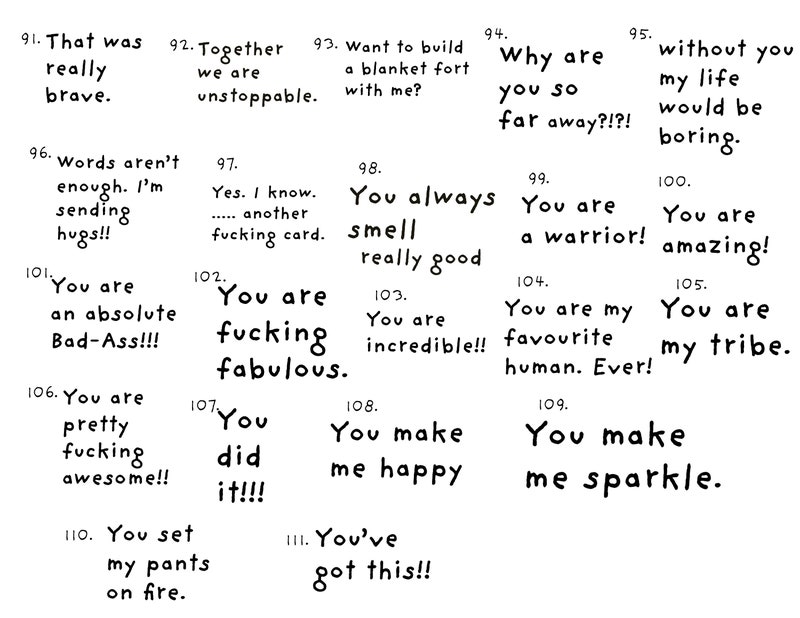 91. That was
really
brave.
92. Together
we are
unstoppable.
93. Want to build
a blanket fort
with me?
94. Why are
you so
far away?!?!
95. without you
my life
would be
boring.
96. Words aren't
enough. I'm
sending
hugs!!
97.
Yes. I know.
..... another
fucking card.
98.
You always
smell
really good
99.
You are
a warrior!
100.
You are
amazing!
101. You are
an absolute
Bad-Ass!!!
102.
You are
fucking
fabulous.
103.
You are
incredible!!
104.
You are my
favourite
human. Ever!
105.
You are
my tribe.
106. You are
pretty
fucking
awesome!!
107. You
did
it!!!
108.
You make
me happy
109.
You make
me sparkle.
110. You set
my pants
on fire.
111. You've
got this!!